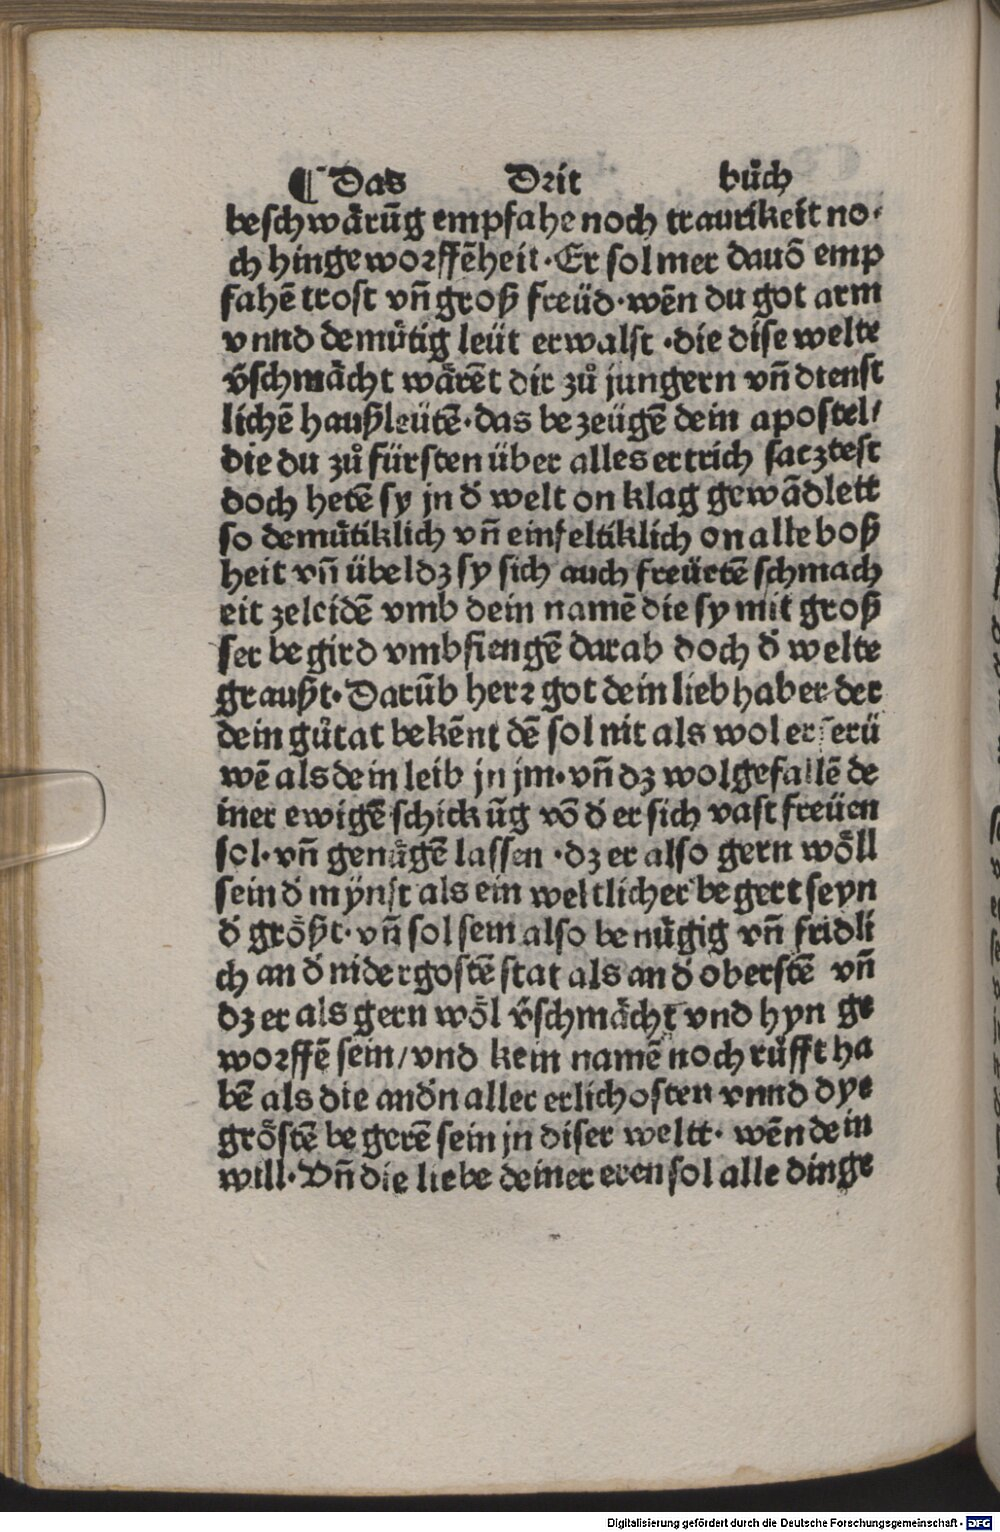 ¶ Das Drit bůch
beschwärūg empfahe noch traurikeit no-
ch hingeworffēheit. Er sol mer dauō emp
fahē trost vn̄ groß freüd. wēn du got arm
vnnd demütig leüt erwalst .die dise welte
v̄schmächt wärēt dir zů jungern vn̄ dienst
lichē haußleütē. das bezeügē dein apostel/
die du zů fürsten über alles ertrich satztest
doch hetē sy jn d̄ welt on klag gewādlett
so demütiklich vn̄ einfeltiklich on alle boß
heit vn̄ übel dz sy sich auch freürtē schmach
eit zeleidē vmb dein namē die sy mit groß
ser begird vmbfiengē darab doch d̄ welte
graußt. Darūb herꝛ got dein liebhaber der
dein gůtat bekēnt dē sol nit als wol erfreü
wē als dein leib jn jm. vn̄ dz wolgefallē de
iner ewigē schickūg vō d̄ er sich vast freüen
sol. vn̄ genügē lassen .dz er also gern wöll
sein d̄ mÿnst als ein weltlicher begert seyn
d̄ größt. vn̄ sol sein also benügig vn̄ fridli
ch an d̄ nidergostē stat als an d̄ oberstē vn̄
dz er als gern wöl v̄schmächt vnd hyn ge
worffē sein/ vnd kein namē noch růfft ha
bē als die andn̄ aller erlichosten vnnd dye
gröstē begerē sein jn diser weltt. wēn dein
will. Vn̄ die liebe deiner eren sol alle dinge
Digitalisierung gefördert durch die Deutsche Forschungsgemeinschaft - DFG